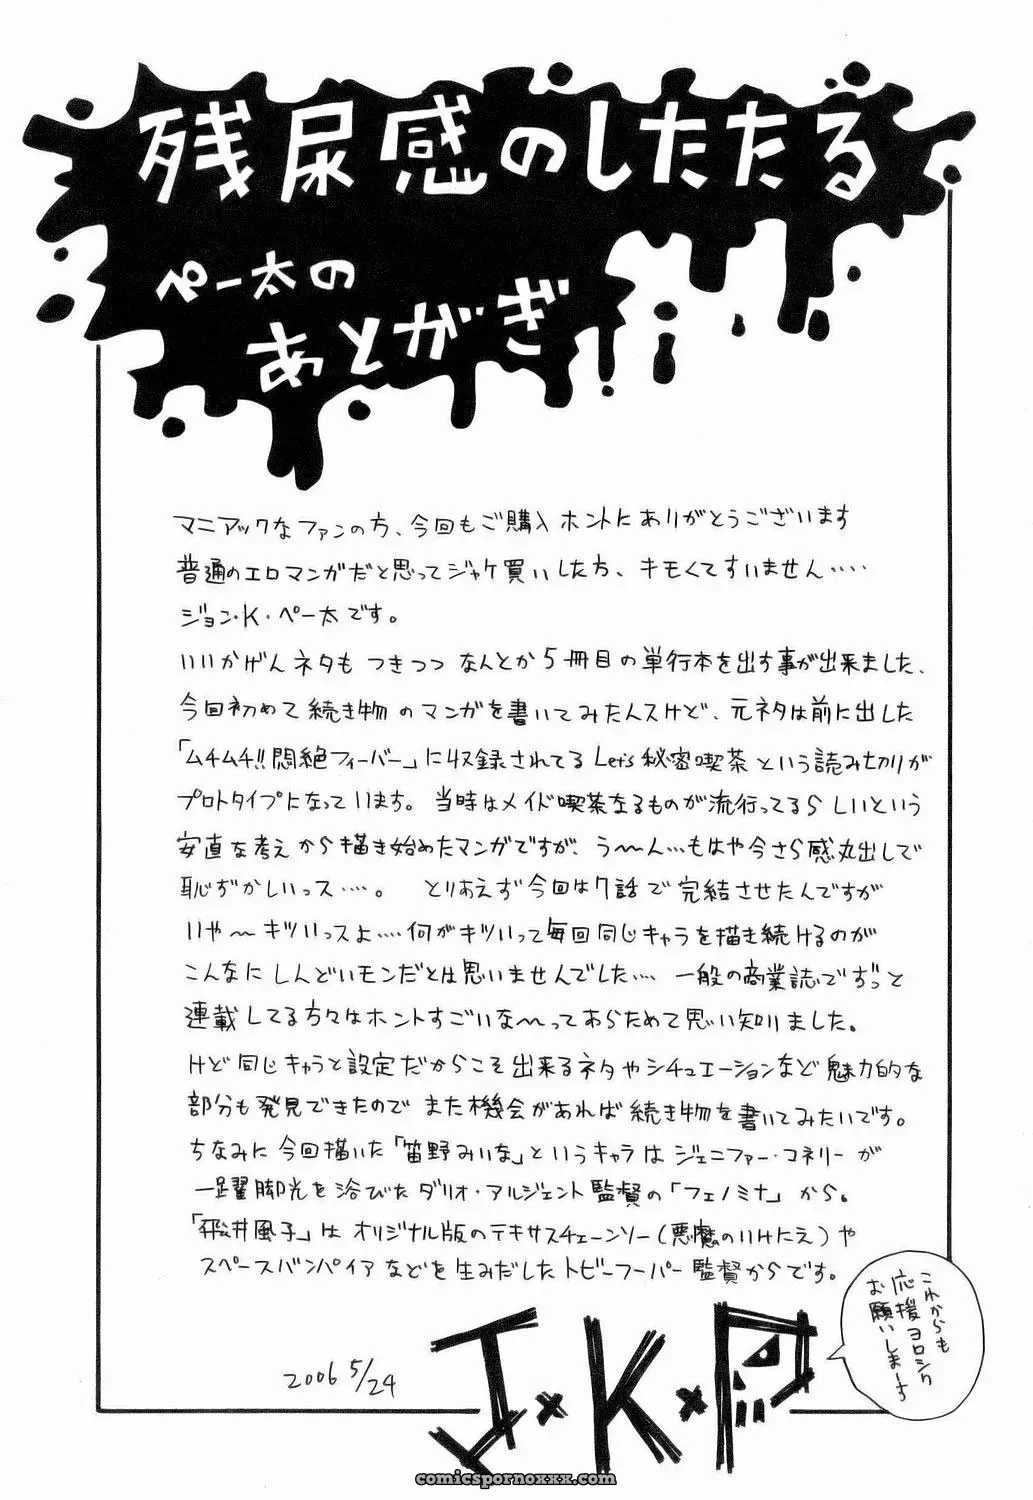 残尿感のしたたる
ぺー太の
あとがぎ
マニアックなファンの方、今回もご購入ホントにありがとうございます
普通のエロマンガだと思ってジャケ買いした方、キモくてすいません‥‥
ジョン・K・ペー太です。
いいかげんネタもつきつつなんとか5冊目の単行本を出す事が出来ました、
今回初めて続き物のマンガを書いてみたんスけど、元ネタは前に出した
「ムチムチ!!悶絶フィーバー」に収録されてるLet's秘密喫茶という読み切りが
プロトタイプになっています。当時はメイド喫茶なるものが流行ってるらしいという
安直な考えから描き始めたマンガですが、う〜ん…もはや今さら感丸出しで
恥ずかしいっス‥‥。 とりあえず今回は7話で完結させたんですが
いや〜キツいっスよ‥‥何がキツいって毎回同じキャラを描き続けるのが
こんなにしんどいモンだとは思いませんでした‥‥一般の商業誌でずっと
連載してる方々はホントすごいな〜ってあらためて思い知りました。
けど同じキャラと設定だからこそ出来るネタやシチュエーションなど魅力的な
部分も発見できたのでまた機会があれば続き物を書いてみたいです。
ちなみに今回描いた「笛野みいな」というキャラはジェニファー・コネリーが
一躍脚光を浴びたダリオ・アルジェント監督の「フェノミナ」から。
「飛井風子」はオリジナル版のテキサスチェーンソー(悪魔のいけにえ)や
スペースバンパイアなどを生みだしたトビーフーパー監督からです。
これからも
応援ヨロシク
お願いしまーす
2006 5/24
J×K×P
comicspornoxxx.com